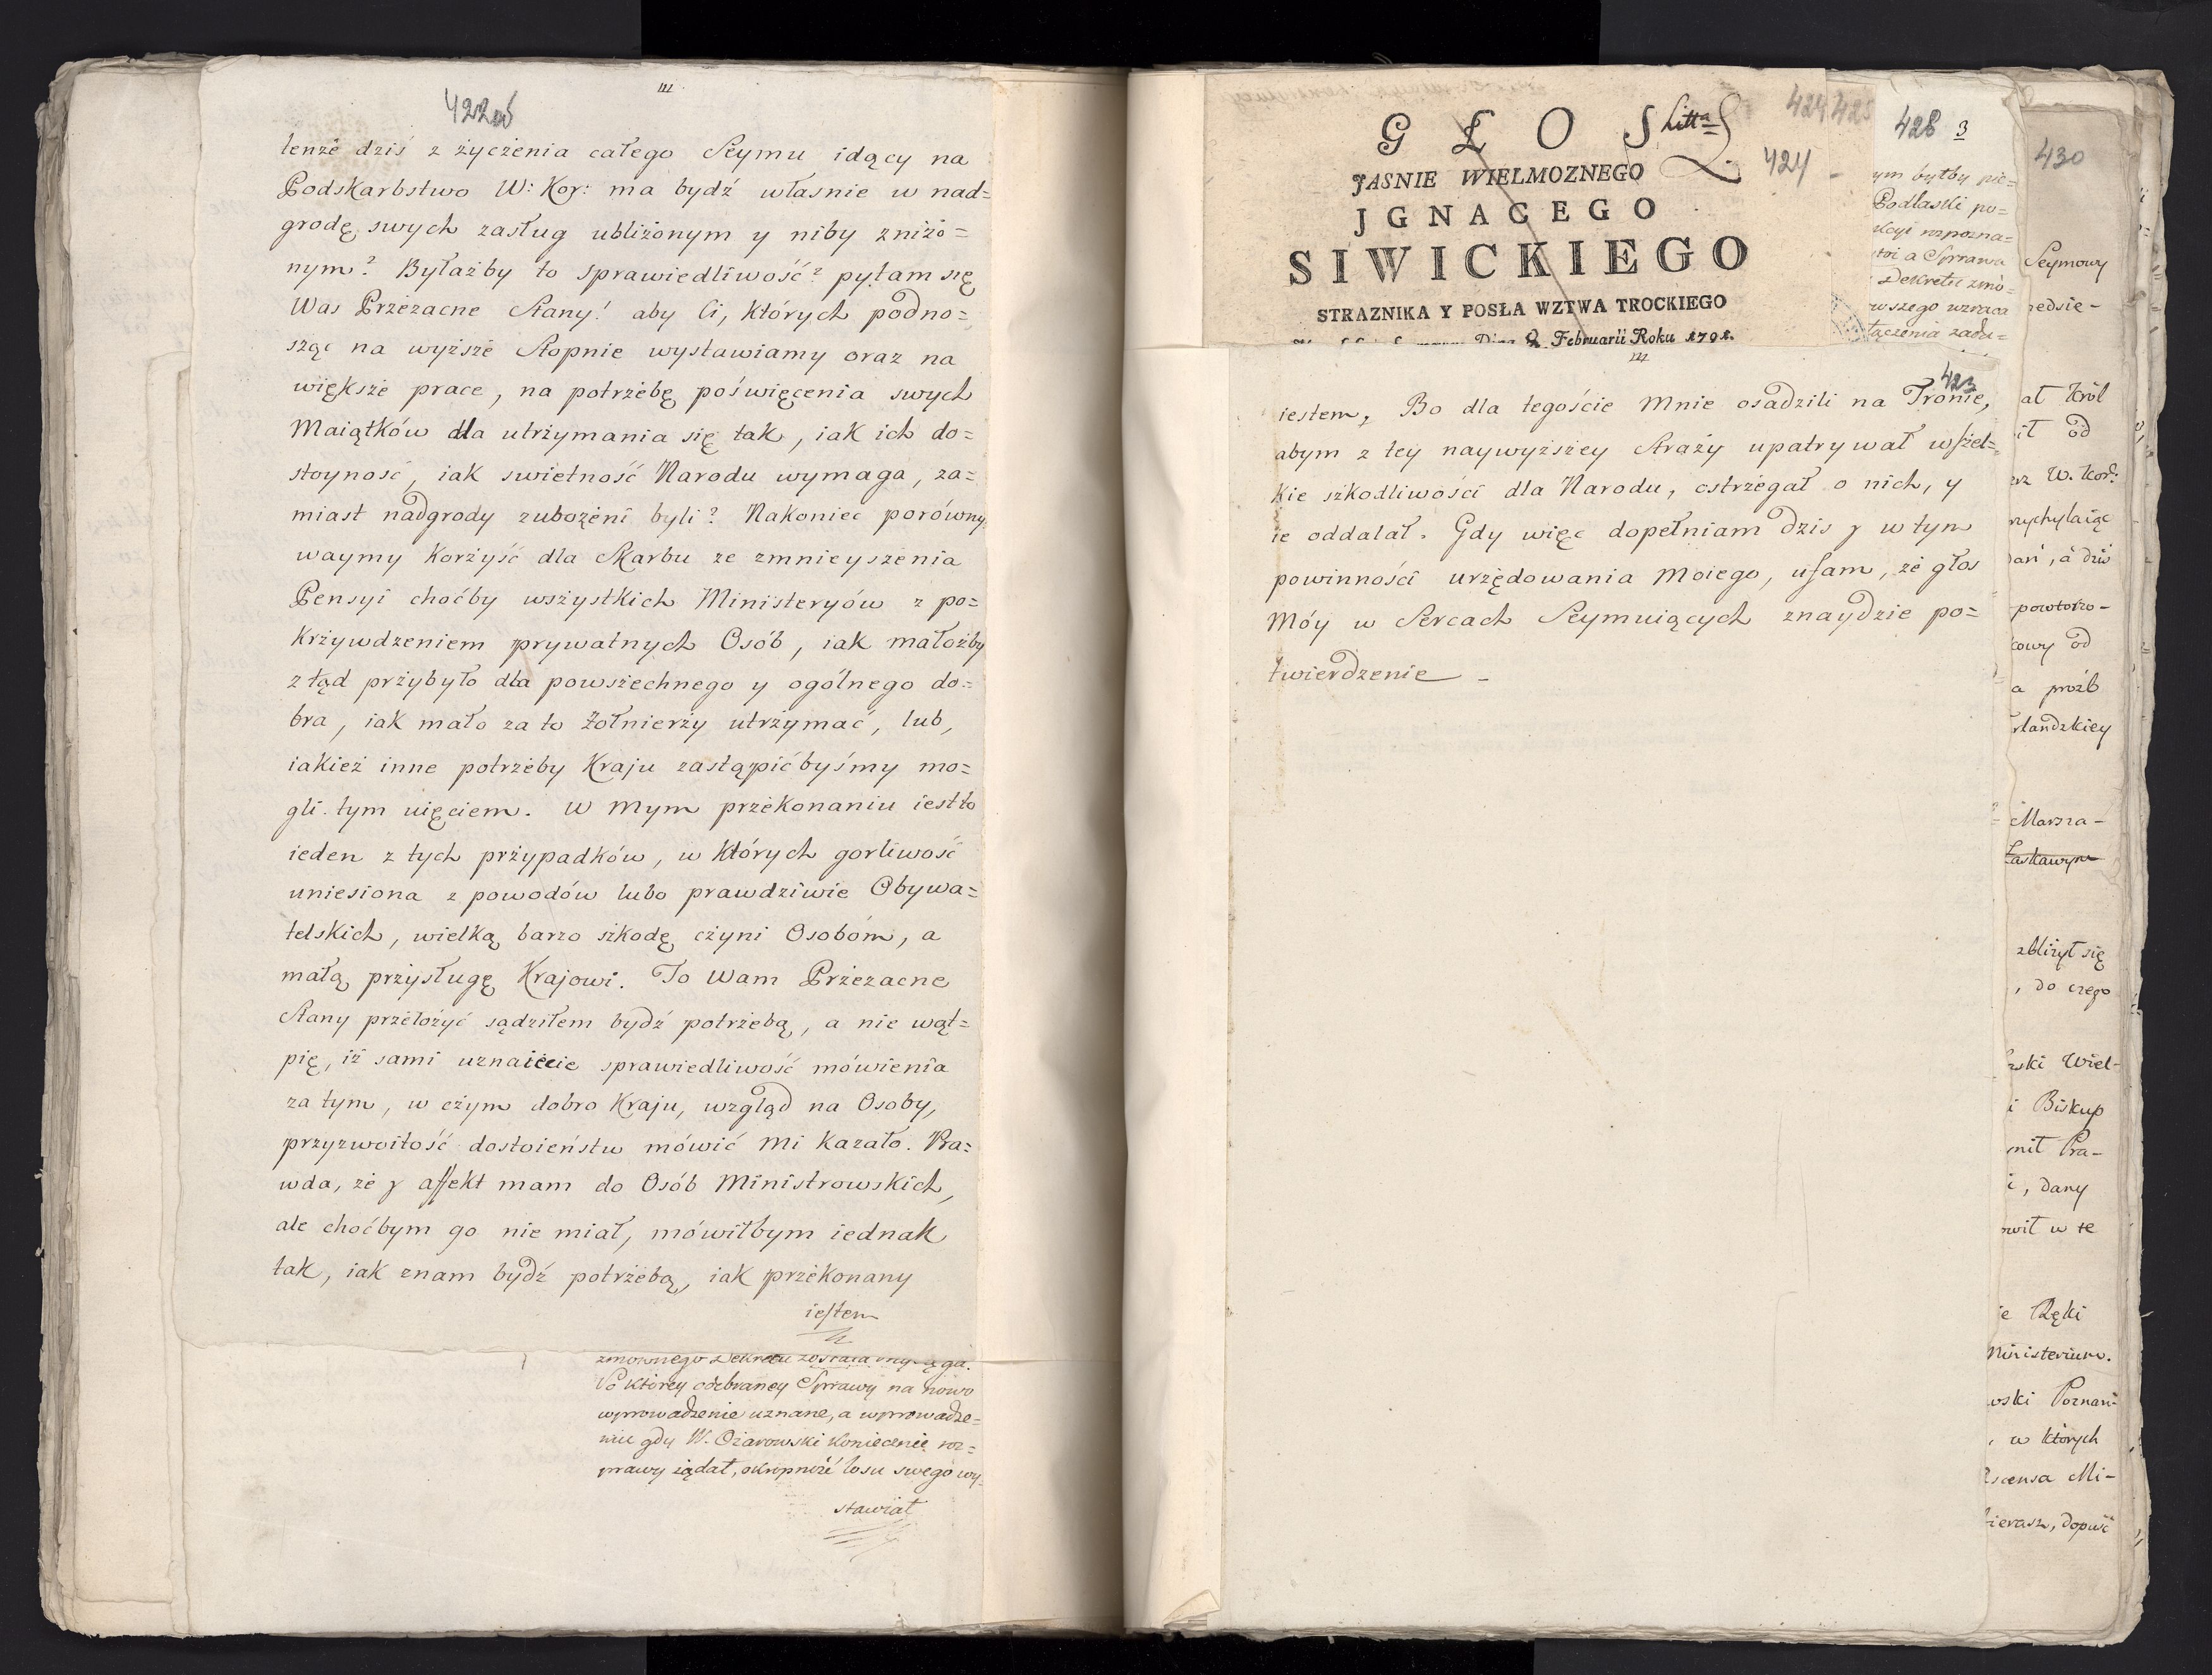 422
tenże dziś z życzenia całego Seymu idący na
Podskarbstwo W: Kor: ma bydź własnie w nad=
grodę swych zasług ubliżonym y niby zniżo=
nym? Byłażby to sprawiedliwość? pytam się
Was Przezacne Stany! aby Ci, których podno=
sząc na wyższe Stopnie wystawiamy oraz na
większe prace, na potrzebę poświęcenia swych
Maiątków dla utrzymania się tak, iak ich do=
stoyność, iak swietność Narodu wymaga, za=
miast nadgrody zubożeni byli? Nakoniec porówny
waymy Korzyść dla Skarbu ze zmnieyszenia
Pensyi choćby wszystkich Ministeryów z po=
krzywdzeniem prywatnych Osób, iak małożby
ztąd przybyło dla powszechnego y ogólnego do=
bra, iak mało za to Żołnierzy utrzymać, lub,
iakież inne potrzeby Kraju zastąpić byśmy mo=
gli tym uięciem. W Mym przekonaniu iest to
ieden z tych przypadków, w których gorliwość
uniesiona z powodów lubo prawdziwie Obywa=
telskich, wielką barzo szkodę czyni Osobom, a
małą przysługę Krajowi. To Wam Przezacne
Stany przełożyć sądziłem bydź potrzebą, a nie wąt=
pię, iż sami uznaiecie sprawiedliwość mówienia
za tym, w czym dobro Kraju, wzgląd na Osoby,
przyzwoitość dostoieństw mówić Mi kazało. Pra=
wda, że y affekt mam do Osób Ministrowskich,
ale choćbym go nie miał, mówiłbym iednak
tak, iak znam bydź potrzebą, iak przekonany
iestem
zmownego Dekretu została
Po którey odebraney Sprawy na nowo
wprowadzenie uznane, a wprowadze=
niu gdy W. Ożarowski koniecznie roz=
prawy żądał, okropność losu swego wy=
stawiał
GŁOS Litta
424 425
JASNIE WIELMOZNEGO
424
JGNACEGO
SIWICKIEGO
STRAZNIKA Y POSŁA WZTWA TROCKIEGO
Dnia 8. Februarii Roku 1791.
423
iestem, Bo dla tegoście Mnie osadzili na Tronie,
abym z tey naywyższey Straży upatrywał wszel=
kie szkodliwości dla Narodu, ostrzegał o nich, y
ie oddalał. Gdy więc dopełniam dzis y w tym
powinności urzędowania Moiego, ufam, że głos
Móy w Sercach Seymuiących znaydzie po=
twierdzenie _
428 3
ym byłby pie=
Podlaski po=
kcyi rozpozna=
a Sprawa
Dekretu zmó=
rwszego wzraca
łączenia zadu=
430
Seymowy
zedsie-
at Król
ił od
rz W. Kor:
rzychylaiąc
dań, a dziś
powtorzo-
cowy od
a prozb
rlandzkiey
Marsza-
Łaskawym
zbliżył się
, do czego
rski Wiel-
i Biskup
mił Pra-
i, dany
owił w te
ie Ręki
Ministerium.
wski Poznań=
, w których
Ascensa Mi-
bierasz, dopuść